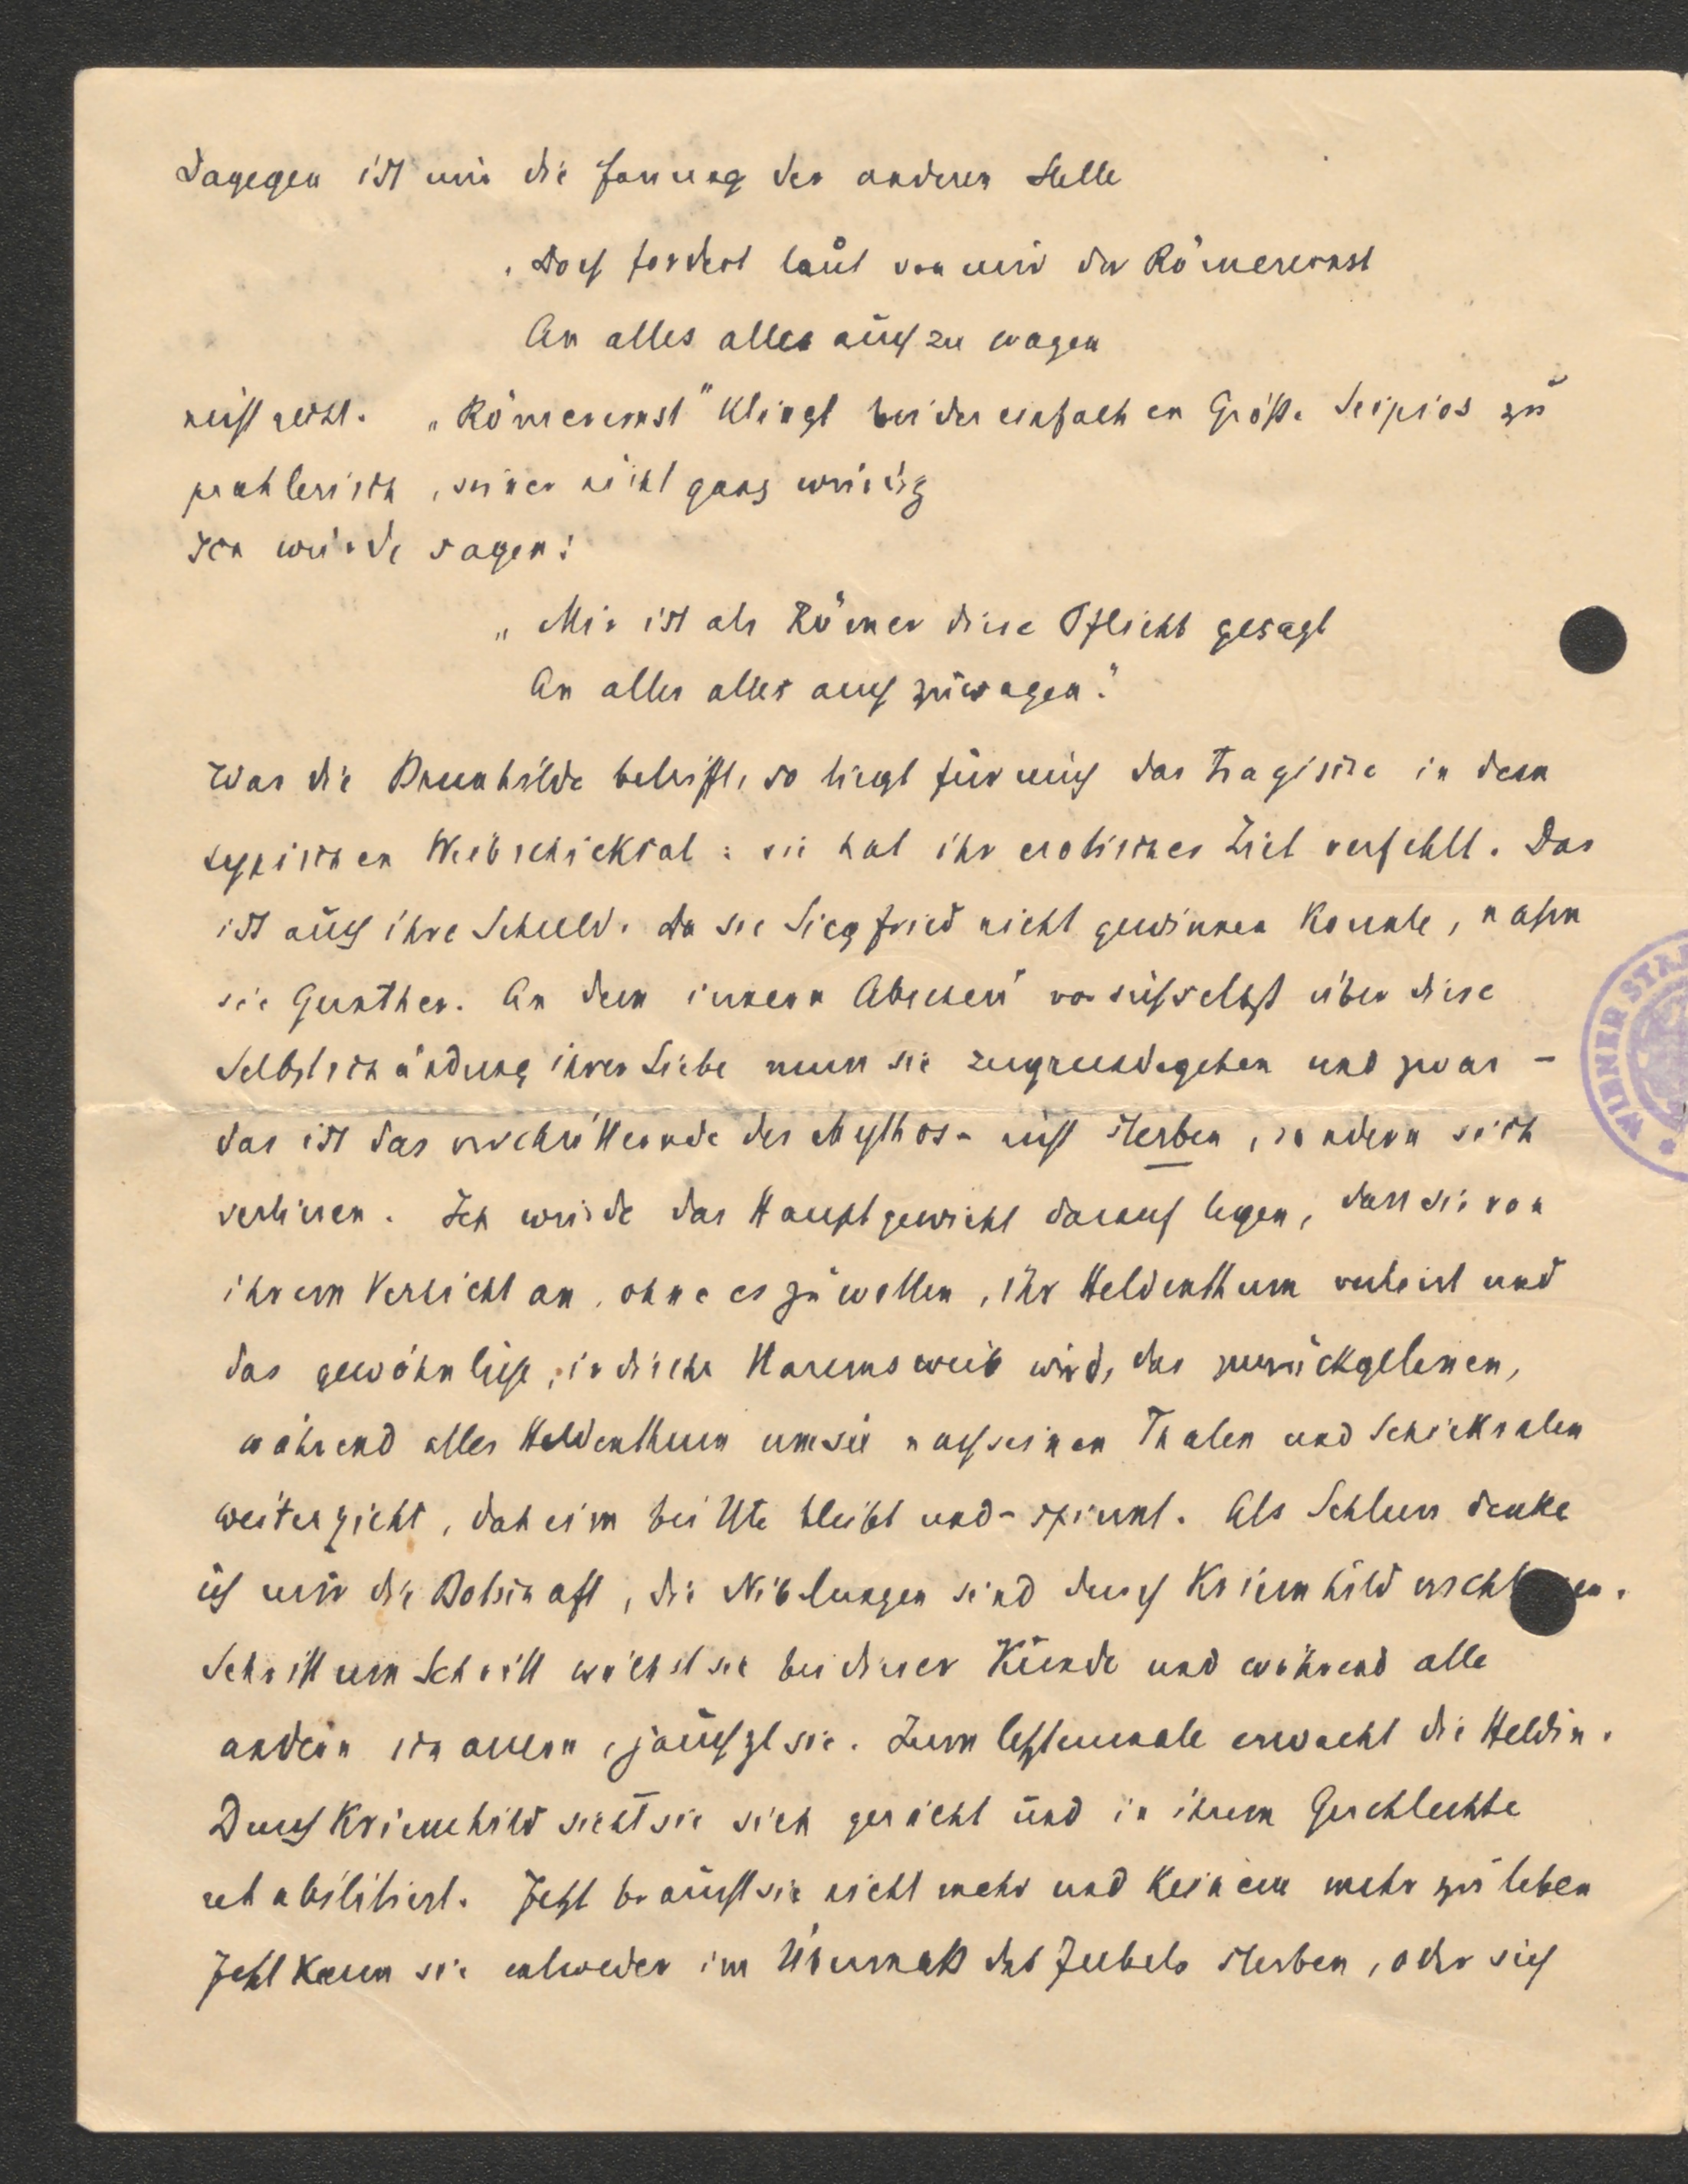 Dagegen ist mir die Fassung der anderen Stelle
„Doch fordert laut von mir der Römerernst
An alles alles auch zu wagen
nicht recht. „Römerernst" klingt bei der einfachen Größe Scipios zu
prahlerisch, seiner nicht ganz würdig
Ich würde sagen:
„Mir ist als Römer diese Pflicht gesagt
An alles alles auch zu wagen."
Was die Brunhilde betrifft, so liegt für mich das Tragische in dem
typischen Weibschicksal: sie hat ihr erotisches Ziel verfehlt. Das
ist auch ihre Schuld. Da sie Siegfried nicht gewinnen konnte, nahm
sie Gunther. An dem innern Abscheu vor sich selbst über diese
Selbstschändung ihrer Liebe muss sie zugrundegehen und zwar –
das ist das erschütternde des Mythos – nicht sterben, sondern sich
verlieren. Ich würde das Hauptgewicht darauf legen, dass sie von
ihrem Verzicht an, ohne es zu wollen, ihr Heldenthum verliert und
das gewöhnliche, irdische Haremsweib wird, das zurückgelassen,
während alles Heldenthum um sie nach seinen Thaten und Schicksalen
weiterzieht, daheim bei Ute bleibt und – spinnt. Als Schluss denke
ich mir die Botschaft, die Niblungen sind durch Kriemhild erschlagen.
Schritt um Schritt wächst sie bei dieser Kunde und während alle
andern schauern, jauchzt sie. Zum letztenmale erwacht die Heldin.
Durch Kriemhild sieht sie sich gerächt und in ihrem Geschlechte
rehabilitiert. Jetzt braucht sie nicht mehr und keinem mehr zu leben
Jetzt kann sie entweder im Übermaß des Jubels sterben, oder sich
WIENER STA